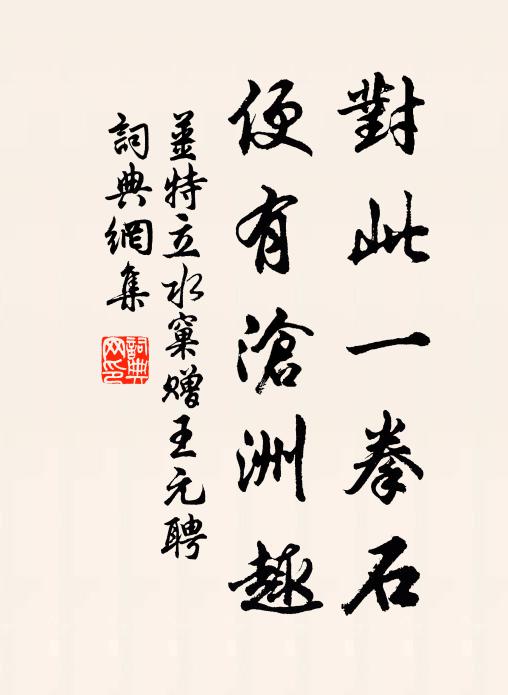 對此一拳石
便有滄洲趣
薑特立水窠贈王元聘
詞典網集
詞典網印